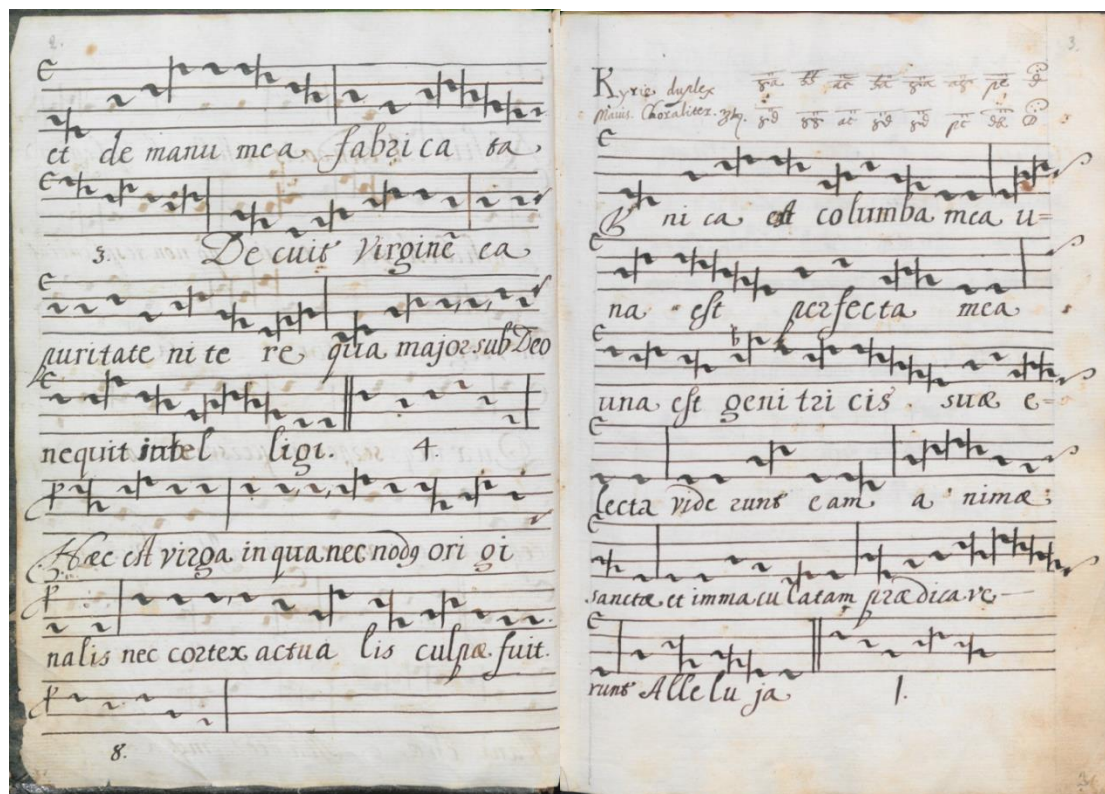 2.
et de manu mea fabrica ta
3. De cuit Virginē ea
puritate ni te re qua major sub Deo
nequit intel ligi. 4
Hæc est virga in qua nec nodꝯ ori gi
nalis nec cortex actua lis culpæ fuit.
8.
3.
Kyrie duplex
Choraliter.
ni ca est columba mea u=
na est perfecta mea
una est geni tri cis suæ e=
lecta vide runt eam a nimæ
sanctæ et immacu latam prædicave
runt Allelu ja 1.